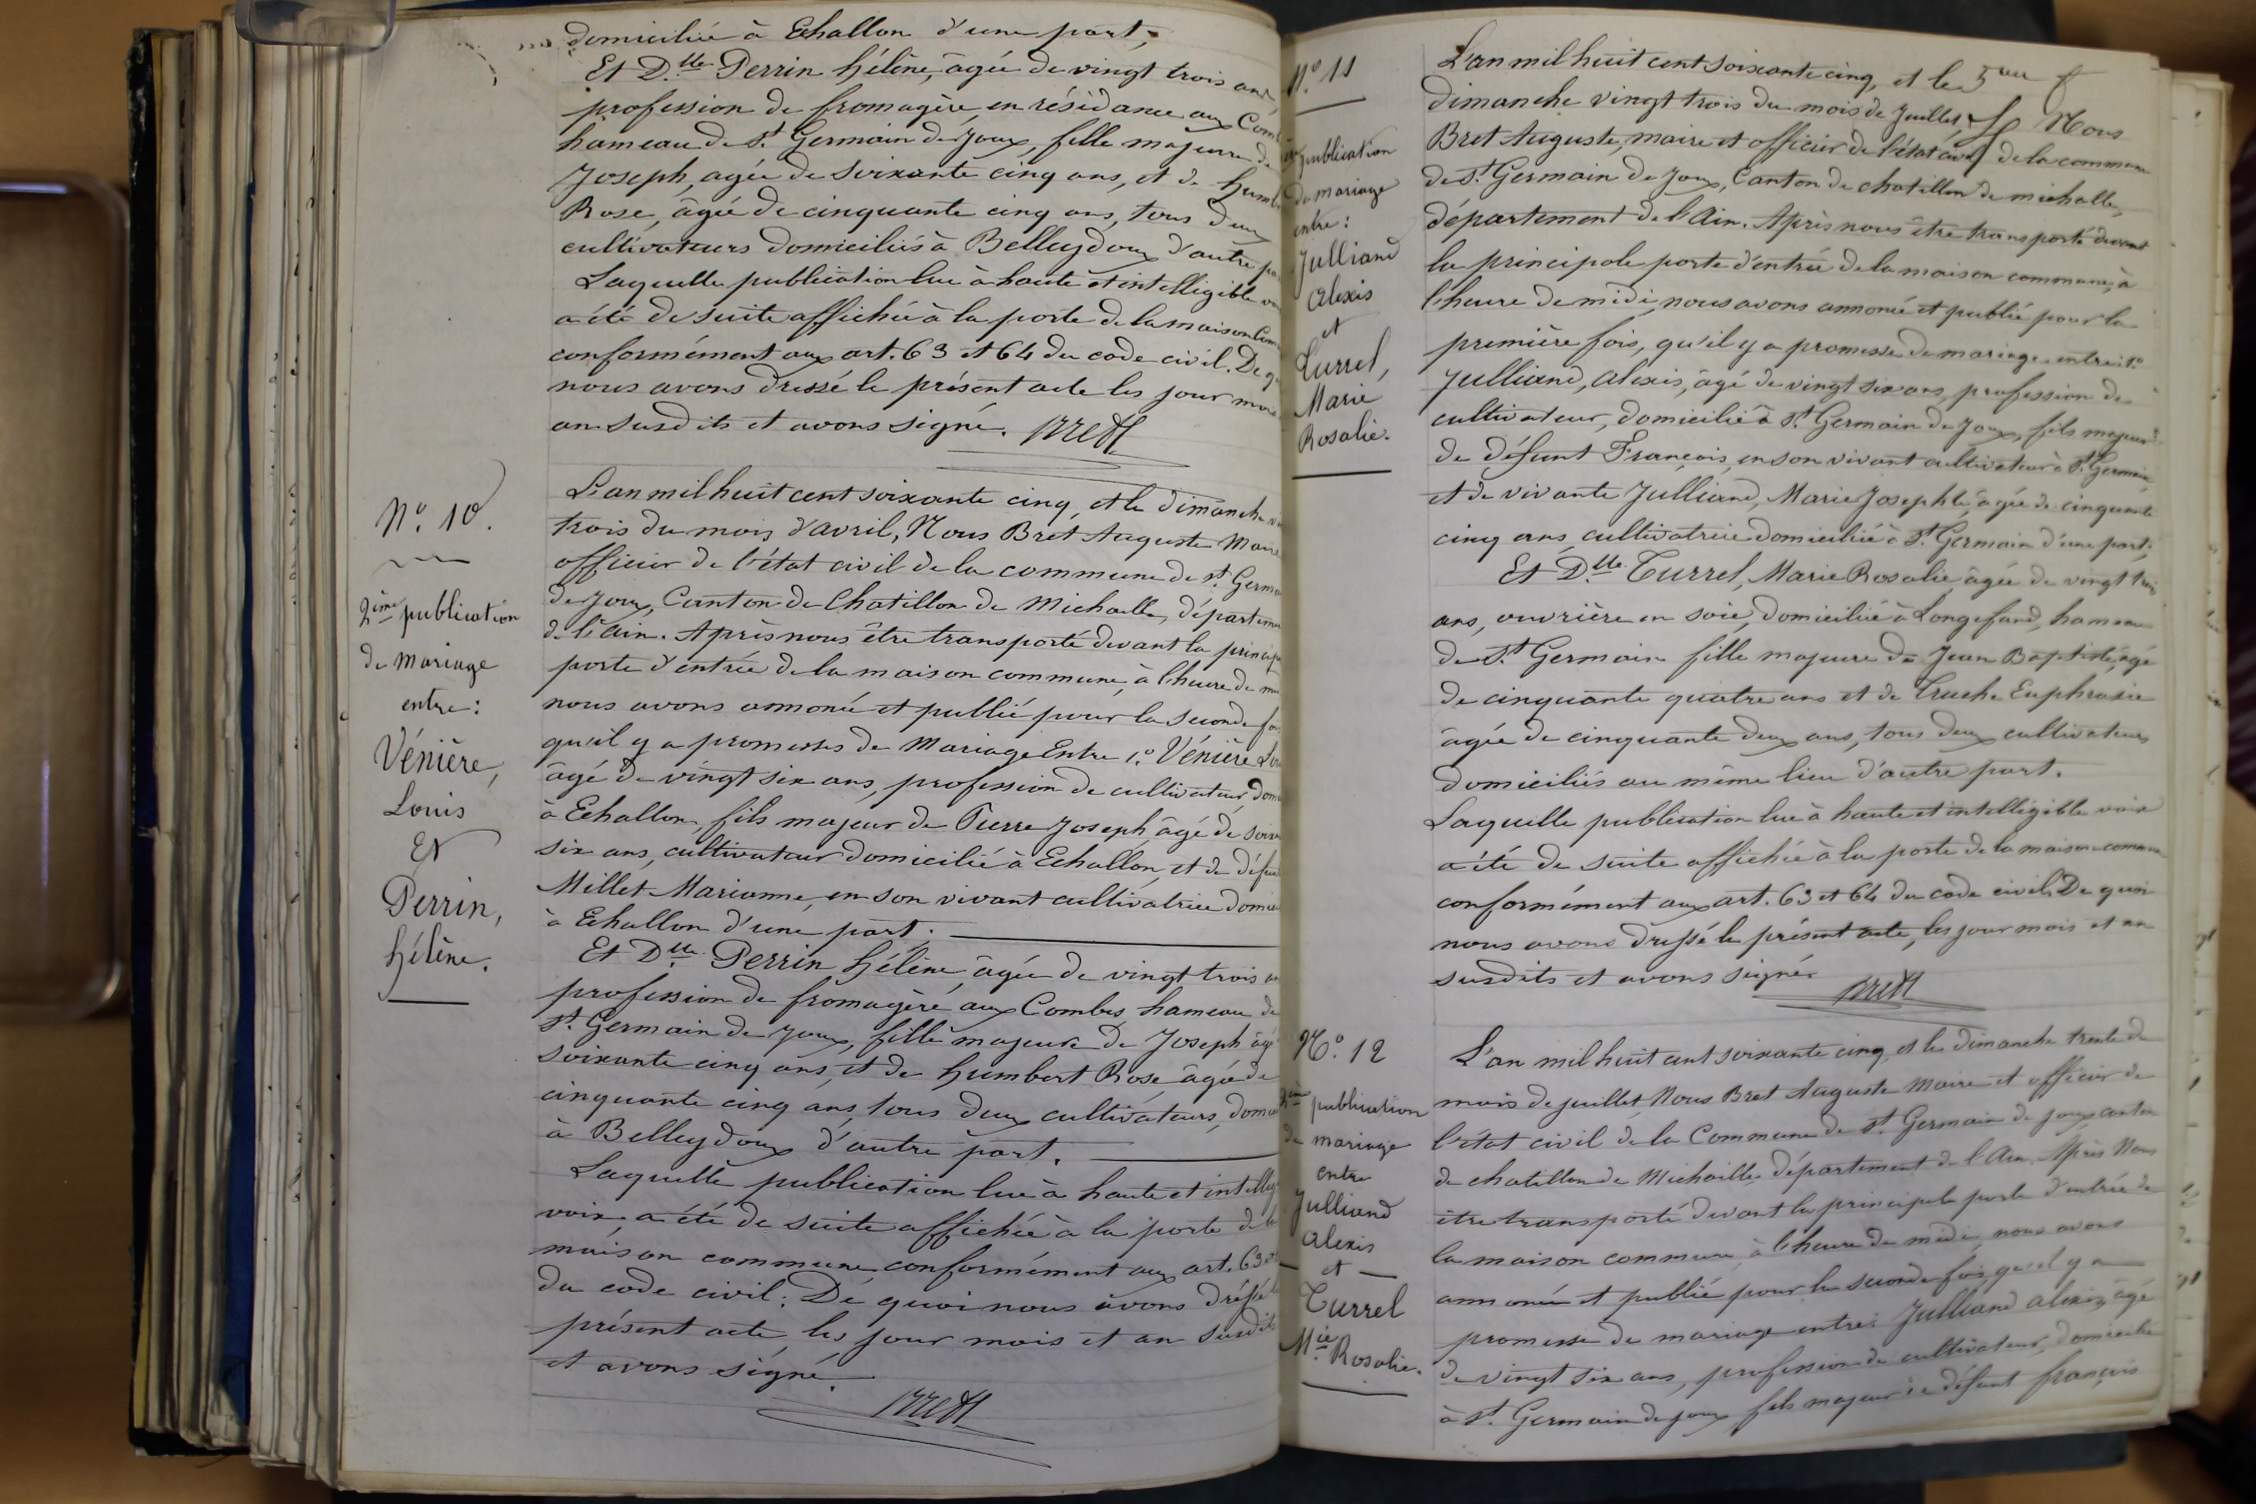 domiciliée à Echallon d'une part,
Et D.lle Perrin hélène, âgée de vingt trois ans,
profession de fromagère en résidance aux Comb
hameau de St. Germain de Joux, fille majeure de
Joseph, agée de soixante cinq ans, et de humb
Rose, âgée de cinquante cinq ans, tous deux
cultivateurs domiciliés à Belleydoux d'autre pa
Laquelle publication lue à haute et intelligible voi
a été de suite affichée à la porte de la maison Com
conformément aux art. 63 et 64 du code civil. De q
nous avons dressé le présent acte les jour mois
an susdits et avons signé. Bret
N.o 10.
2ème publication
de mariage
entre:
Vénière,
Louis
Et
Perrin,
hélène.
L'an mil huit cent soixante cinq, et le dimanche v
trois du mois d'avril, Nous Bret Auguste Maire
officier de l'état civil de la commune de St. Germa
de Joux, Canton de Chatillon de Michaille, départem
de l'ain. Après nous être transporté devant la princip
porte d'entrée de la maison commune, à l'heure de mi
nous avons annoncé et publié pour la seconde foi
qu'il y a promesses de mariage Entre 1.o Vénière Lou
âgé de vingt six ans, profession de cultivateur dom
à Echallon, fils majeur de Pierre Joseph, âgé de soix
six ans, cultivateur domicilié à Echallon, et de défu
Millet Marianne, en son vivant cultivatrice domi
à Echallon d'une part.
Et D.lle Perrin hélène, âgée de vingt trois a
profession de fromagère aux Combes, hameau de
St. Germain de Joux, fille majeure de Joseph âg
soixante cinq ans, et de humbert Rose âgée de
cinquante cinq ans, tous deux cultivateurs, domi
à Belleydoux d'autre part.
Laquelle publication lue à haute et intellig
voix, a été de suite affichée à la porte de la
maison commune conformément aux art. 63 e
du code civil: De quoi nous avons dressé le
présent acte, les jour mois et an susdits
et avons signé.
Bret
N.o 11
publication
de mariage
entre:
Julliand
alexis
et
Turrel,
Marie
Rosalie.
L'an mil huit cent soixante cinq, et le
dimanche vingt trois du mois de Juillet Nous
Bret Auguste, maire et officier de l'état civil de la commune
de St. Germain de Joux, Canton de chatillon de michaille,
département de l'Ain. Après nous être transporté devant
la principale porte d'entrée de la maison commune, à
l'heure de midi, nous avons annoncé et publié pour la
première fois, qu'il y a promesse de mariage entre: 1.o
Julliand, alexis, âgé de vingt six ans, profession de
cultivateur, domicilié à St. Germain de Joux, fils majeur
de défunt François, en son vivant cultivateur à St. Germain,
et de vivante Julliand, Marie Josephte, âgée de cinquante
cinq ans cultivatrice domiciliée à St. Germain d'une part;
Et D.lle Turrel, Marie Rosalie âgée de vingt trois
ans, ouvrière en soie, domiciliée à Longefand, hameau
de St. Germain fille majeure de Jean Baptiste, âgé
de cinquante quatre ans et de Truche Euphrasie
âgée de cinquante deux ans, tous deux cultivateurs
domiciliés au même lieu d'autre part.
Laquelle publication lue à haute et intelligible voix
a été de suite affichée à la porte de la maison commune
conformément aux art. 63 et 64 du code civil. De quoi
nous avons dressé le présent acte, les jour mois et an
susdits et avons signé.
Bret
N.o 12
2ème publication
de mariage
entre
Julliand
alexis
et
Turrel
Mie. Rosalie.
L'an mil huit cent soixante cinq et le dimanche trente du
mois de juillet Nous Bret Auguste maire et officier de
l'état civil de la Commune de St. Germain de joux canton
de chatillon de Michaille département de l'Ain Après Nous
être transporté devant la principale porte d'entrée de
la maison commune à l'heure de midi nous avons
annoncé et publié pour la seconde fois qu'il y a
promesse de mariage entre: Julliand alexis, âgé
de vingt six ans, profession de cultivateur, domicilié
à St. Germain de joux fils majeur de défunt françois